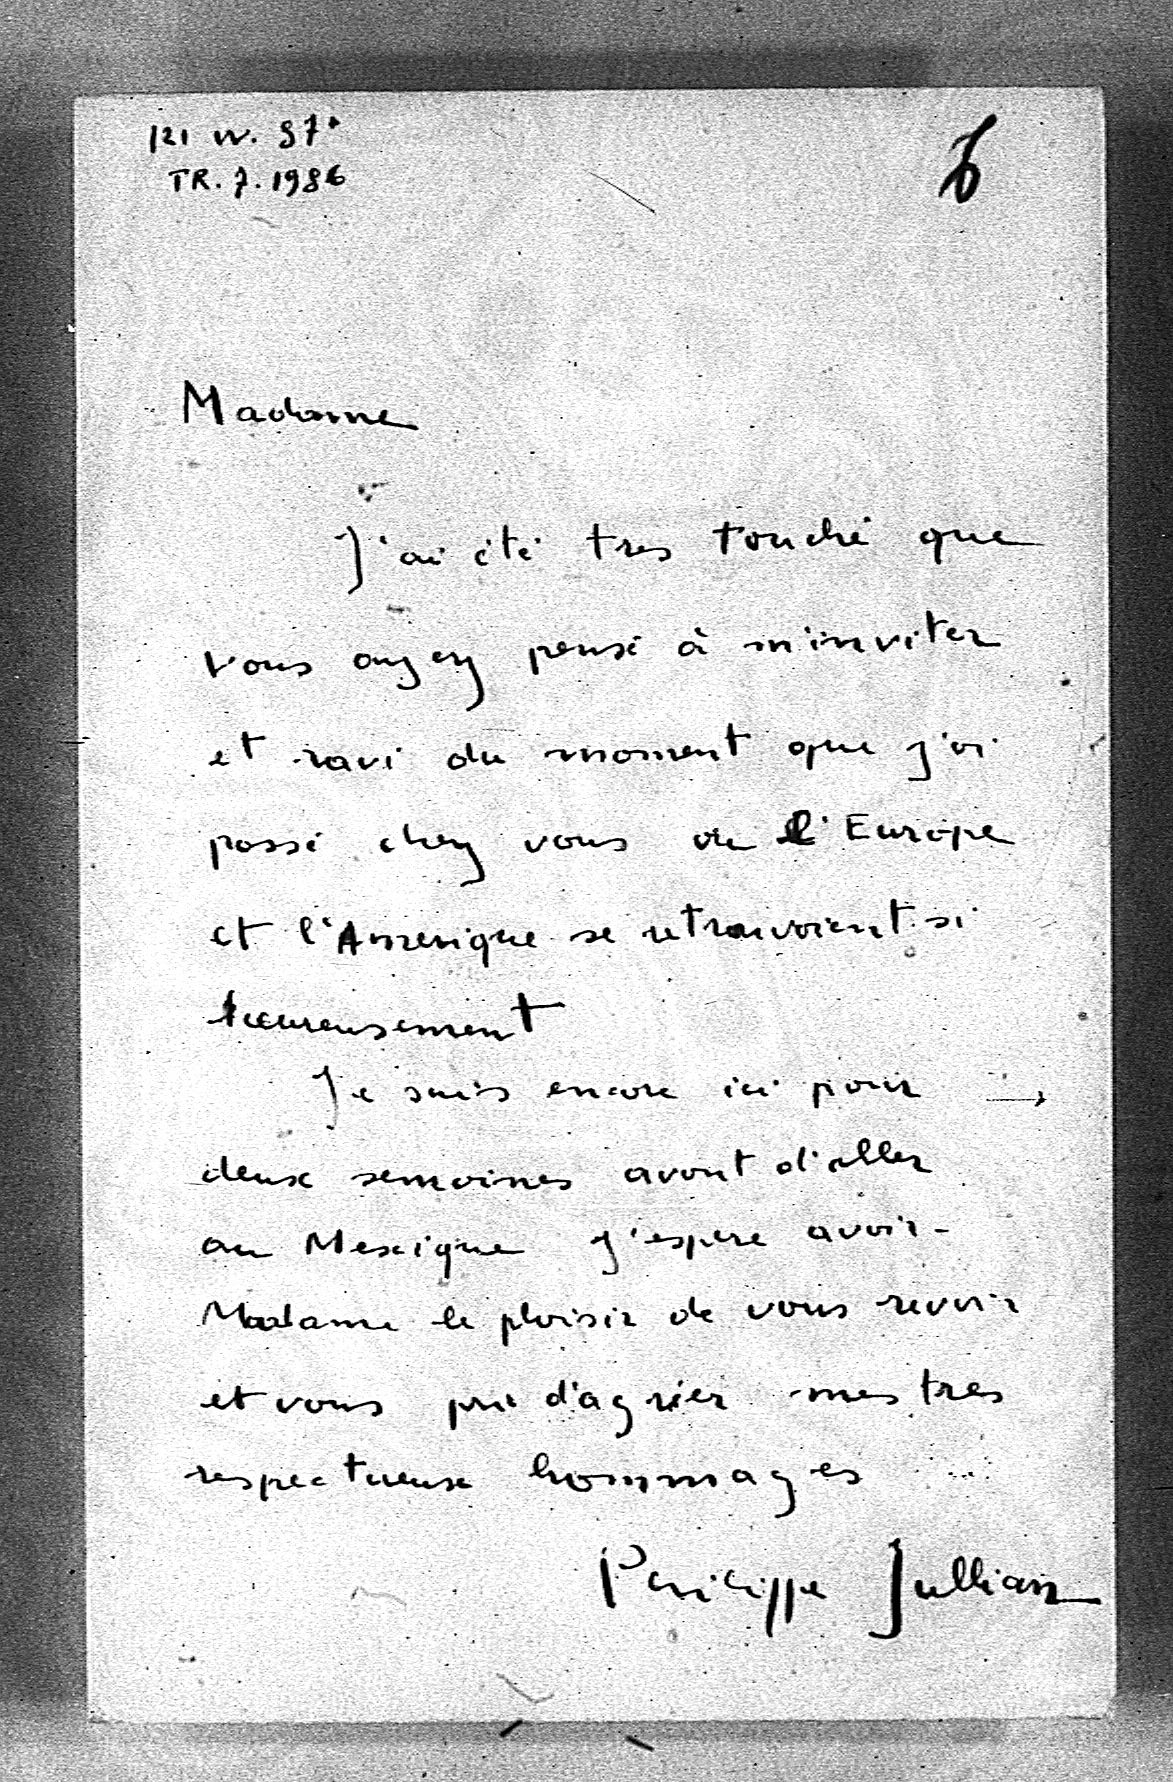 121 W. 87
TR. 7. 1986
Madame
J'ai été tres touché que
vous ayez pensé à m'inviter
et ravi du moment que j'ai
passé chez vous ou l'Europe
et l'Amerique se retrouvaient si
heureusement
Je suis encore ici pour
deux semaines avant d'aller
au Mexique J'espere avoir
Madame le plaisir de vous revoir
et vous prie d'agréer mes tres
respectueux hommages
Philippe Jullian